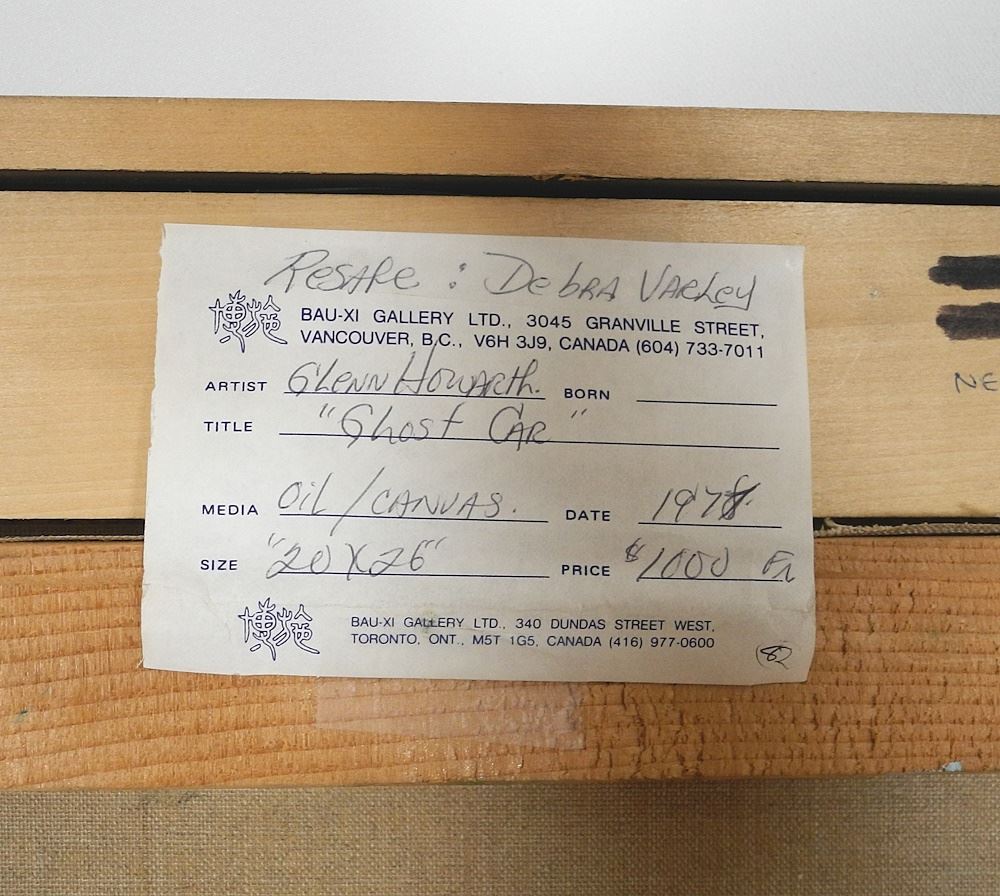 Resale : Debra Varley
BAU-XI GALLERY LTD., 3045 GRANVILLE STREET,
VANCOUVER, B.C., V6H 3J9, CANADA (604) 733-7011
ARTIST Glenn Howarth. BORN
TITLE "Ghost Car"
MEDIA Oil/CANVAS. DATE 1978
SIZE "20 X 26" PRICE $1000 Fr
BAU-XI GALLERY LTD., 340 DUNDAS STREET WEST,
TORONTO, ONT., M5T 1G5, CANADA (416) 977-0600
NE